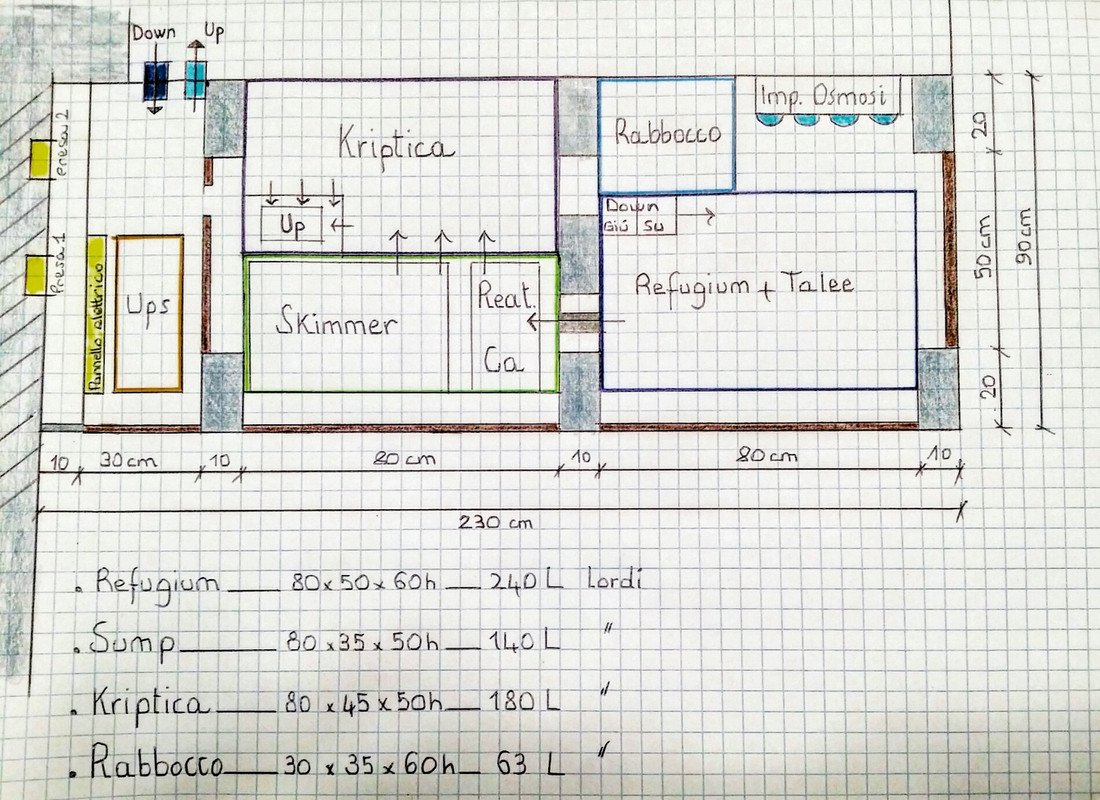 Down Up
Presa 2
Kriptica
Rabbocco
Imp. Osmosi
20
Up
Down
Giú Su
Presa 1
Pannello elettrico
Ups
Skimmer
Reat.
Ca
Refugium + Talee
50 cm
90 cm
20
10 30 cm 10 80 cm 10 80 cm 10
230 cm
. Refugium 80 x 50 x 60h 240 L Lordi
. Sump 80 x 35 x 50h 140 L "
. Kriptica 80 x 45 x 50h 180 L "
. Rabbocco 30 x 35 x 60h 63 L "